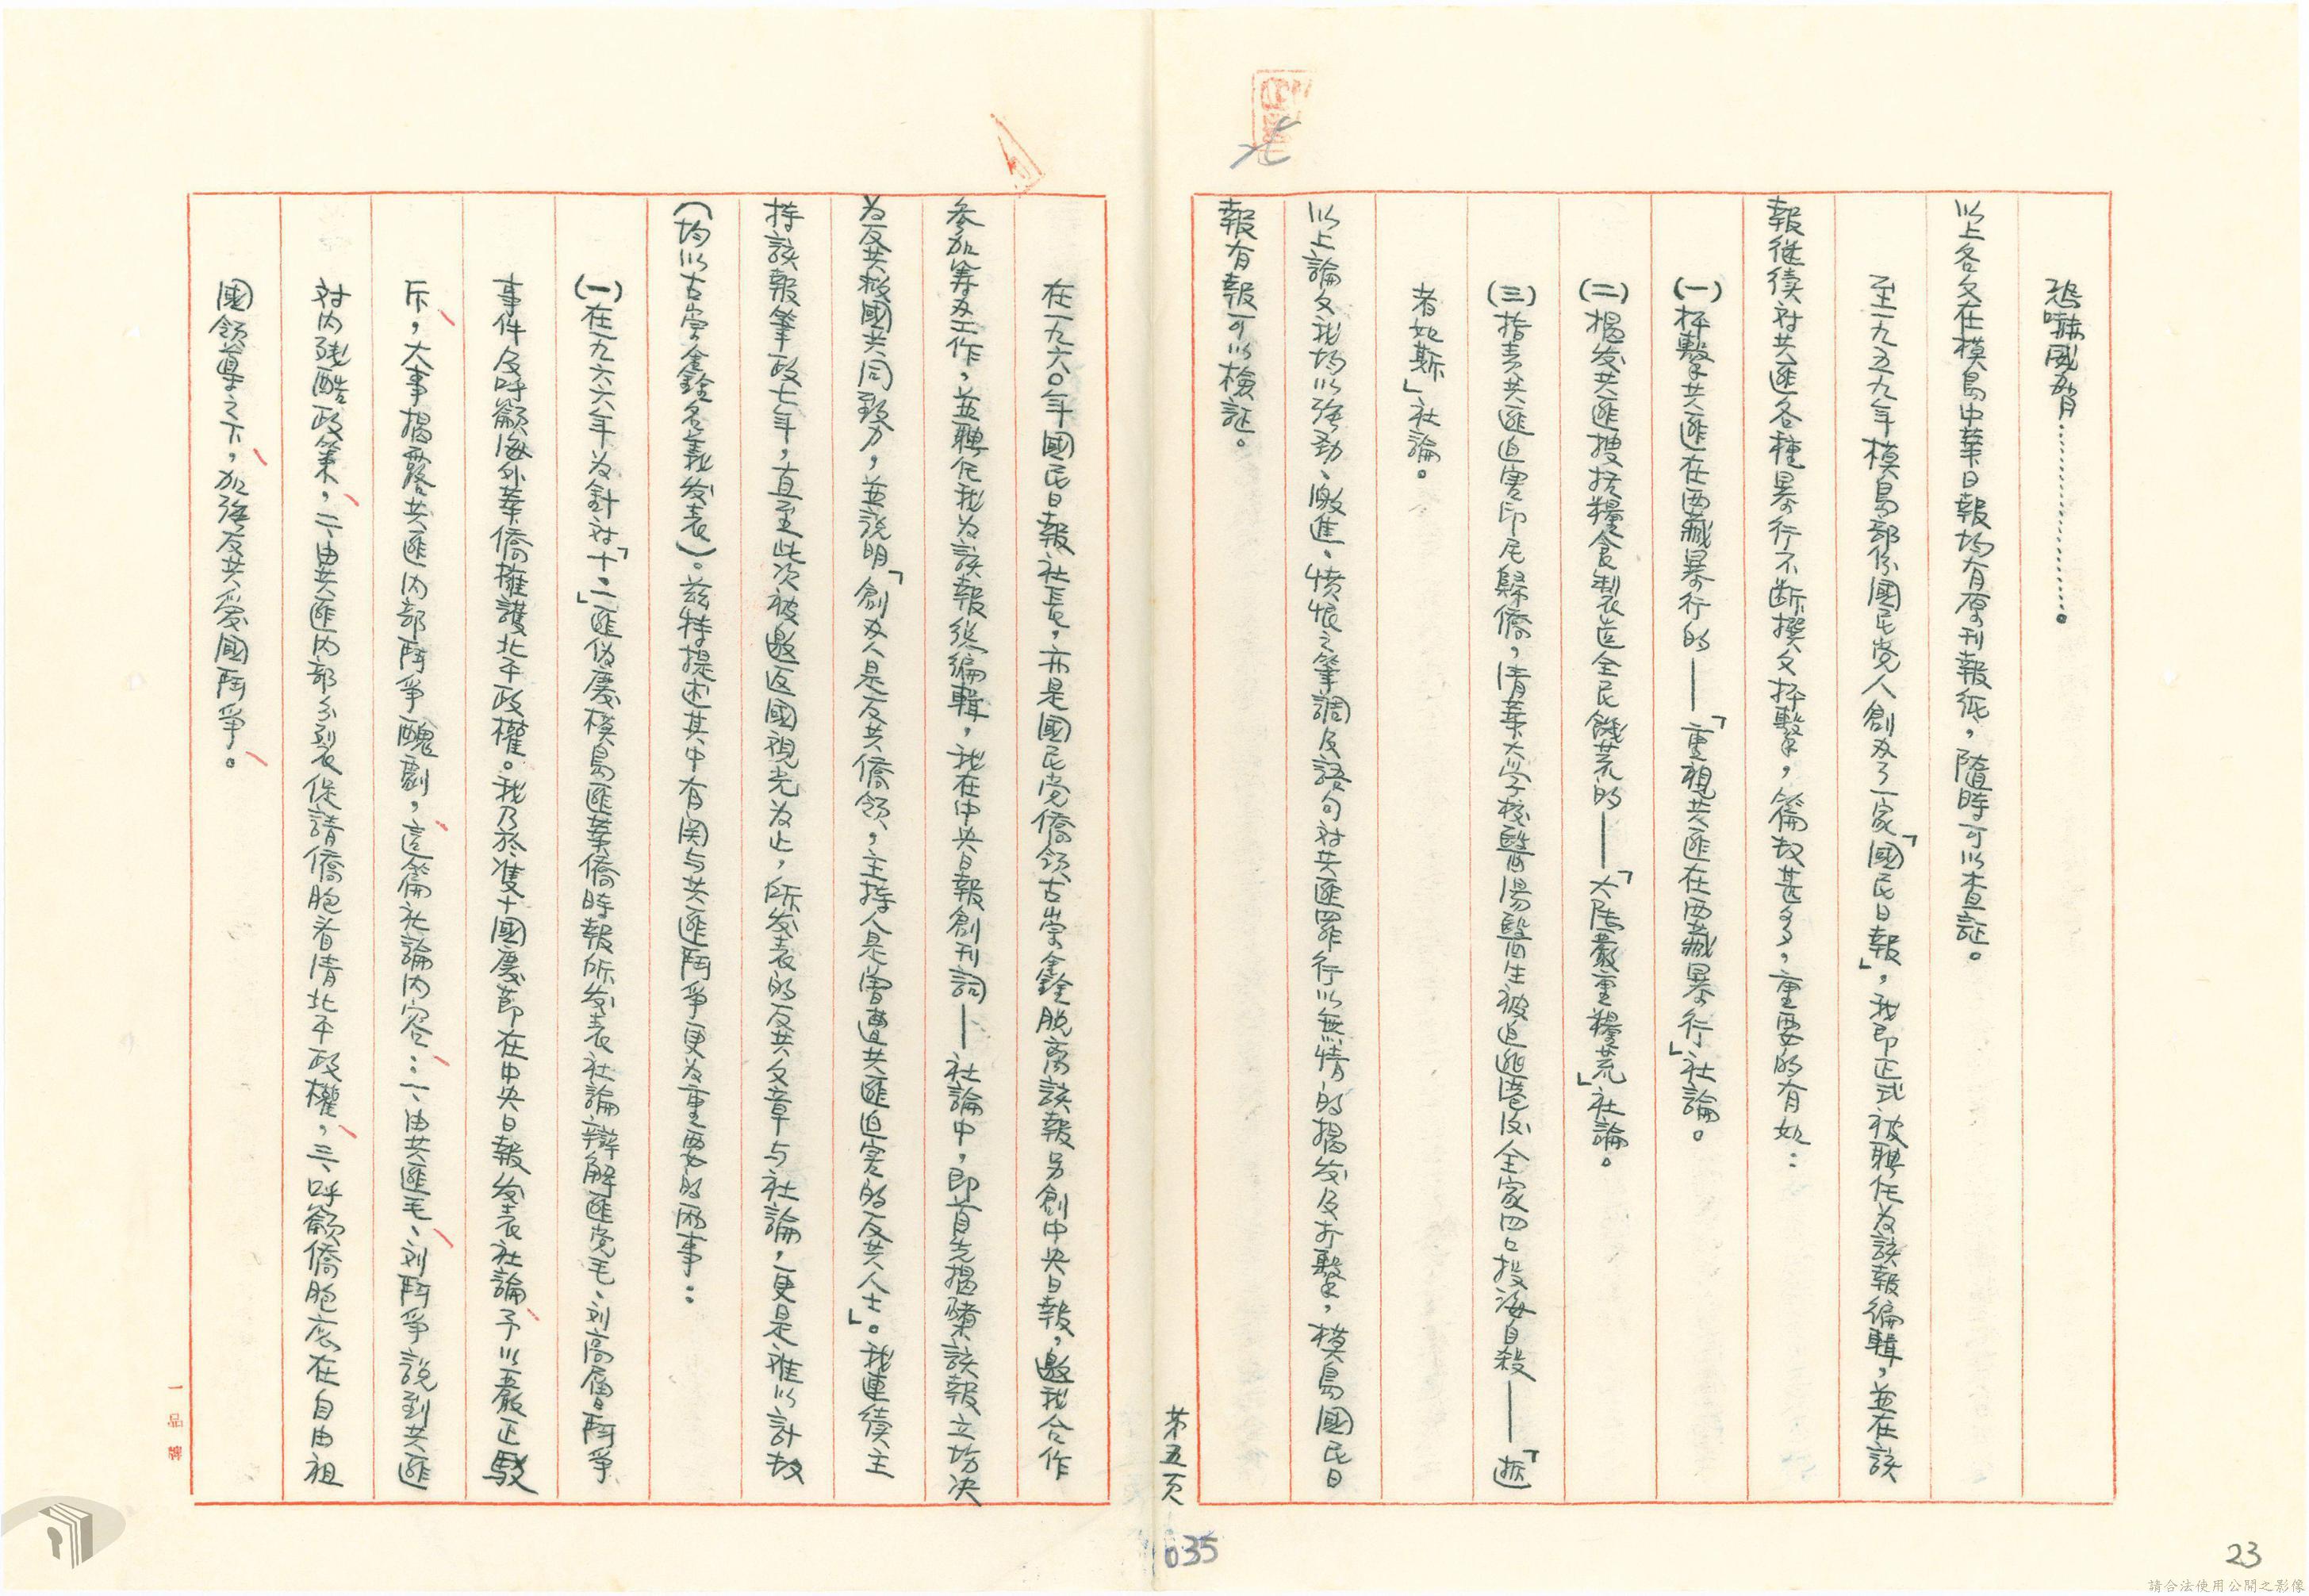 恐嚇威脅…………………。
以上各文在模島中華日報均有原刊報紙，隨時可以查証。
至一九五九年模島部份國民党人創办了一家「國民日報」，我即正式被聘任为該報編輯，並在該
報继续对共匪各種暴行不断撰文抨擊，篇数甚多，重要的有如：
(一)抨擊共匪在西藏暴行的——「重視共匪在西藏暴行」社論。
(二)揭发共匪搜括糧食製造全民饑荒的——「大陆嚴重糧荒」社論。
(三)指責共匪迫害印尼歸僑，清華大学校醫湯醫生被迫逃港後全家四口投海自殺——「逝
者如斯」社論。
以上論文我均以強勁、激進、憤恨之筆調及語句对共匪罪行以無情的揭发及打擊，模島國民日
報有報可以檢証。
第五頁
在一九六〇年國民日報社長，亦是國民党僑領古崇鑫銓脱离該報另創中央日報，邀我合作
参加筹办工作，並聘任我为該報總編輯，我在中央日報創刊詞——社論中，即首先揭櫫該報立埸决
为反共救國共同努力，並説明「創办人是反共僑領，主持人是曾遭共匪迫害的反共人士」。我連续主
持該報筆政七年，直至此次被邀返國視光为止，所发表的反共文章与社論，更是难以計数
（均以古崇鑫銓名義发表）。兹特提述其中有関与共匪鬥爭更为重要的兩事：
(一)在一九六六年为針对「十、一」匪伪慶模島匪華僑時報所发表社論辯解匪党毛、刘高層鬥爭
事件及呼籲海外華僑擁護北平政權。我乃於隻十國慶節在中央日報发表社論予以嚴正駁
斥，大事揭露共匪内部鬥爭醜劇，這篇社論内容：一、由共匪毛、刘鬥爭説到共匪
对内残酷政策，二、由共匪内部分裂衣促請僑胞看清北平政權，三、呼籲僑胞应在自由祖
國領導之下，加強反共愛國鬥爭。
一品牌
035
23
請合法使用公開之影像